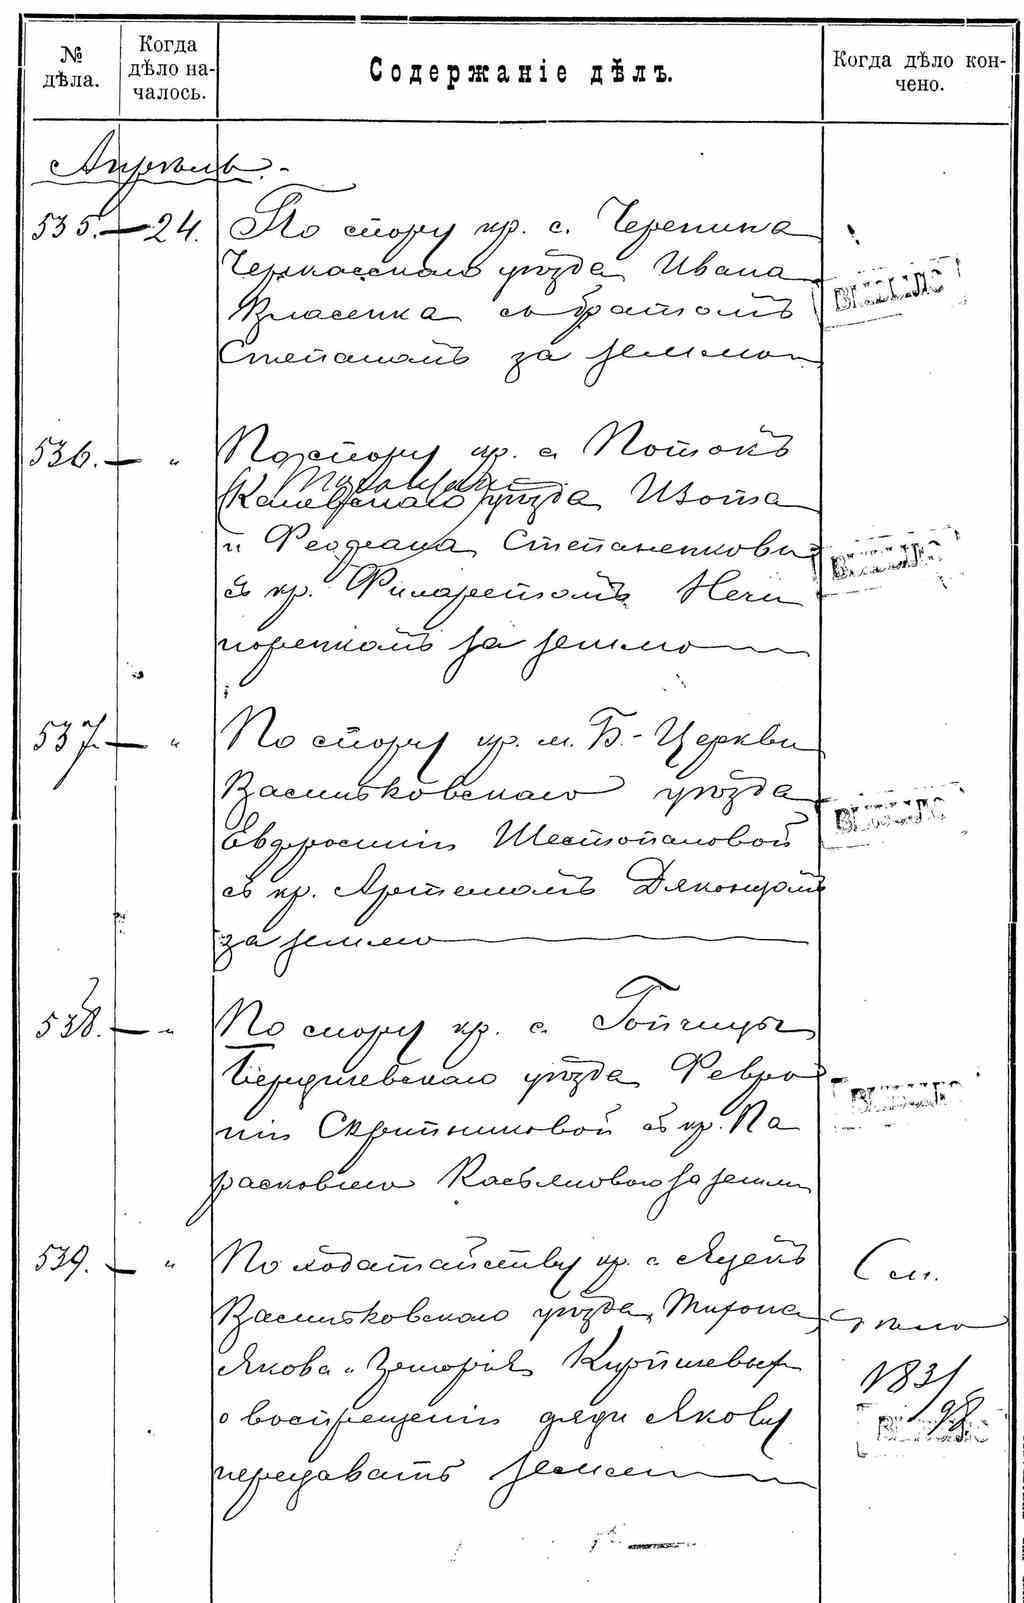 № дѣла.
Когда дѣло началось.
Содержаніе дѣлъ.
Когда дѣло кончено.
Апрѣль.
535. — 24. По спору кр. с. Черепина
Черкасскаго уѣзда Ивана
Власенка съ братомъ
Степаномъ за землю
536. — „ По спору кр. с. Потокъ
Каневскаго уѣзда Изота
и Феофана Степаненковы
съ кр. Филаретомъ Нечи
поренкомъ за землю
537. — „ По спору кр. м. Б.-Церкви
Васильковскаго уѣзда
Евфросиніи Шестопаловой
съ кр. Артемомъ Дяконцомъ
за землю
538. — „ По спору кр. с.
Бердичевскаго уѣзда Февро
ніи Скрипниковой съ кр. Па
расковіею Касьяновою за землю
539. — „ По ходатайству кр. с. Яцекъ
Васильковскаго уѣзда
Якова и Курпшевыхъ
о воспрещеніи дяди Якову
передавать землю
См.
дѣло
1831/98.